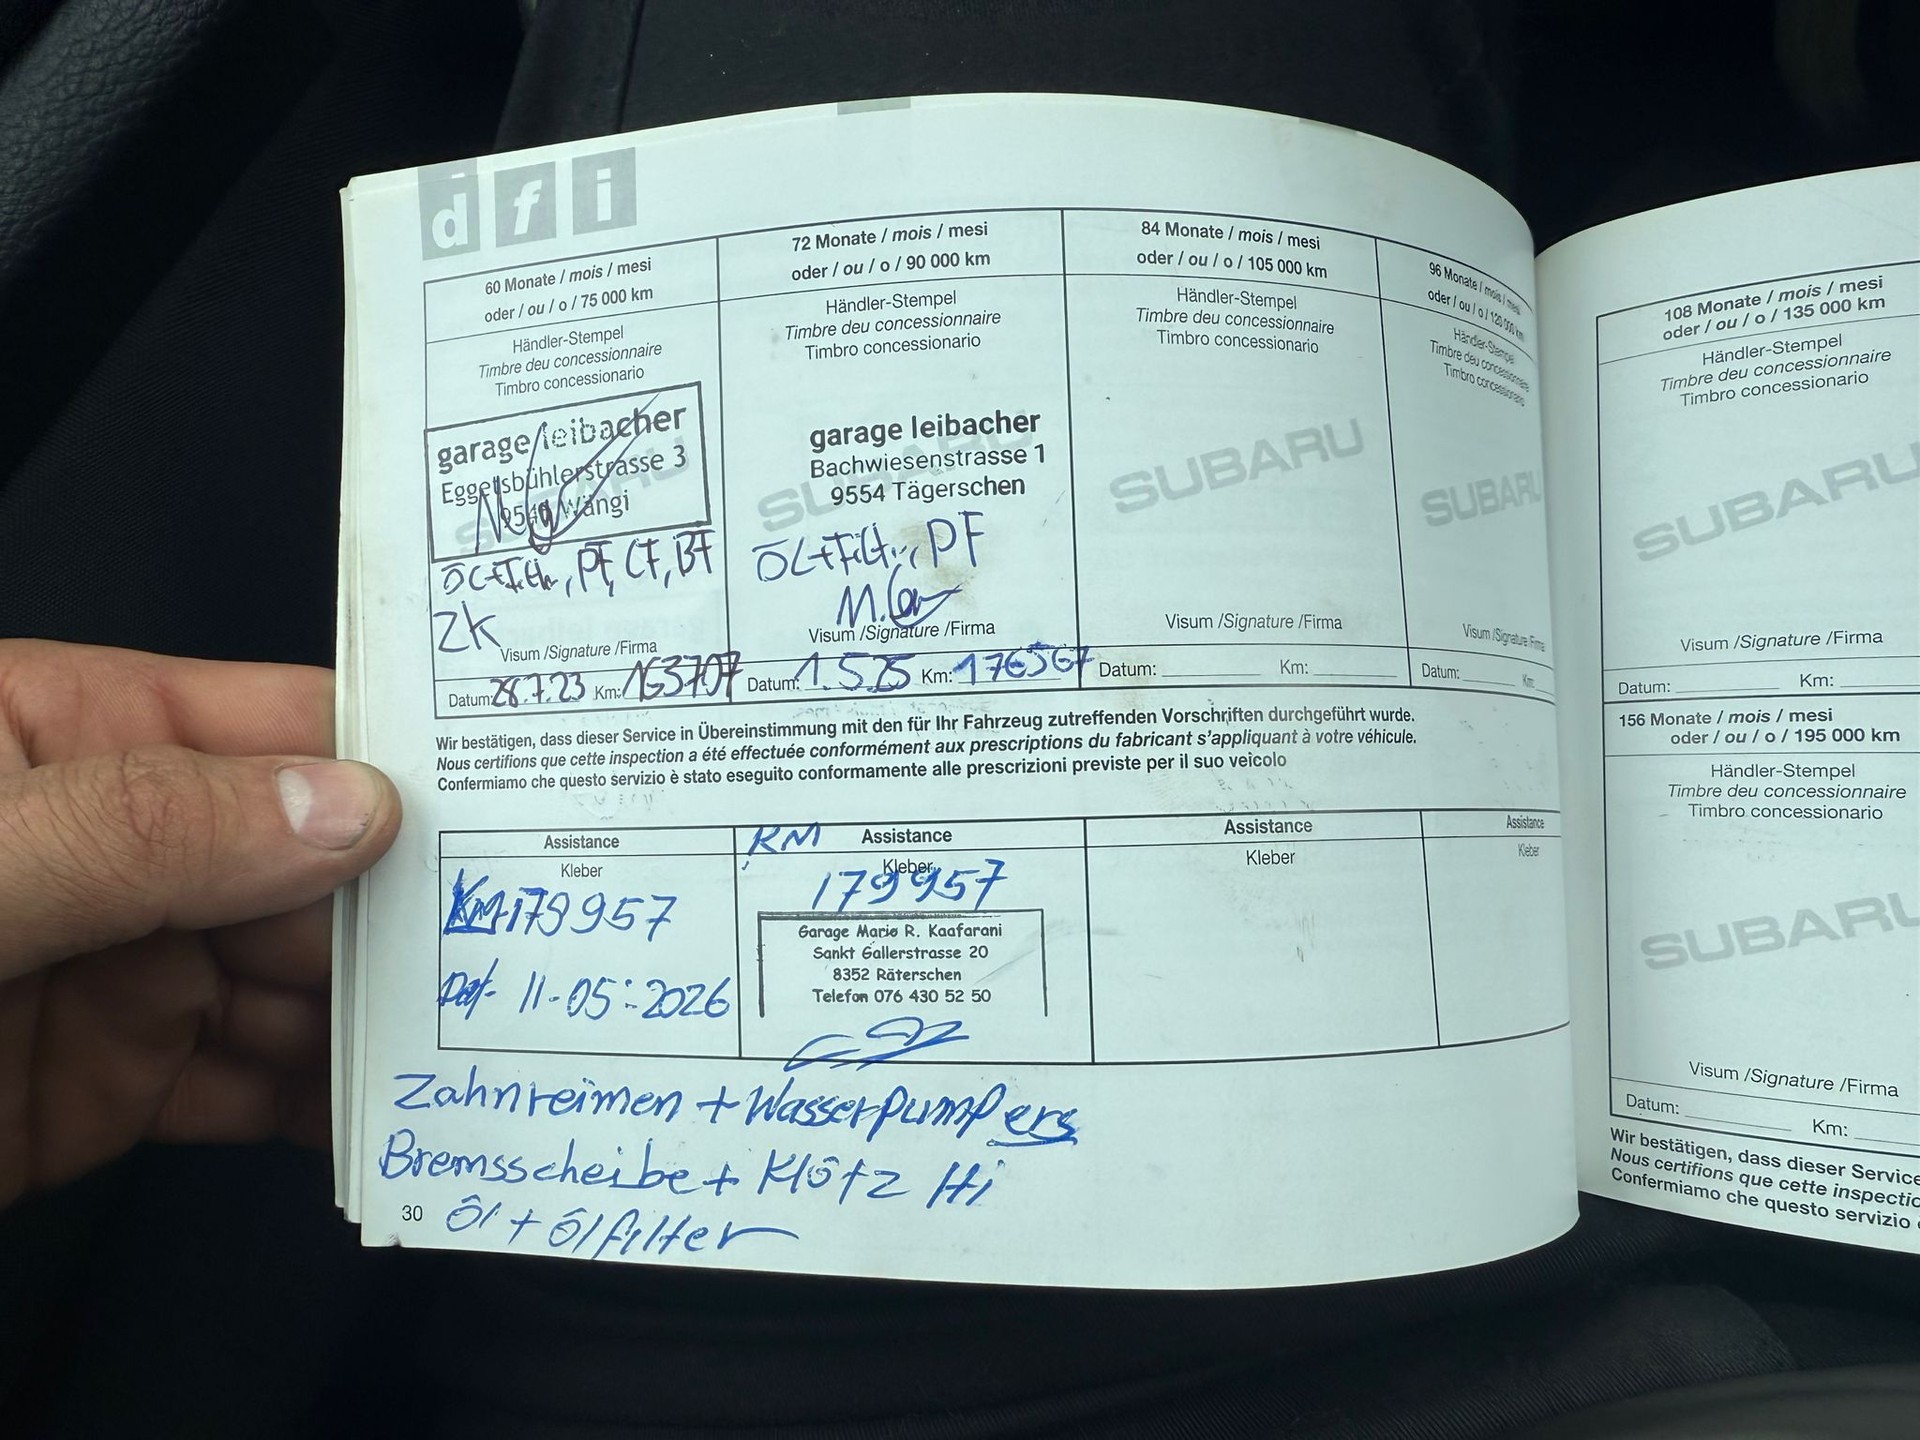 d f i
60 Monate / mois / mesi
oder / ou / o / 75 000 km
Händler-Stempel
Timbre deu concessionnaire
Timbro concessionario
garage leibacher
Eggetsbühlerstrasse 3
Wängi
SUBARU
ÖL+Filter, PF, CF, BF
ZK
Visum /Signature /Firma
Datum: 28.7.23 Km: 163707
72 Monate / mois / mesi
oder / ou / o / 90 000 km
Händler-Stempel
Timbre deu concessionnaire
Timbro concessionario
garage leibacher
Bachwiesenstrasse 1
9554 Tägerschen
SUBARU
ÖL+Filter, PF
Visum /Signature /Firma
Datum: 1.5.25 Km: 176567
84 Monate / mois / mesi
oder / ou / o / 105 000 km
Händler-Stempel
Timbre deu concessionnaire
Timbro concessionario
SUBARU
Visum /Signature /Firma
Datum: Km:
96 Monate / mois / mesi
oder / ou / o / 120 000 km
Händler-Stempel
Timbre deu concessionnaire
Timbro concessionario
SUBARU
Visum /Signature /Firma
Datum: Km:
Wir bestätigen, dass dieser Service in Übereinstimmung mit den für Ihr Fahrzeug zutreffenden Vorschriften durchgeführt wurde.
Nous certifions que cette inspection a été effectuée conformément aux prescriptions du fabricant s'appliquant à votre véhicule.
Confermiamo che questo servizio è stato eseguito conformamente alle prescrizioni previste per il suo veicolo
Assistance
Kleber
Km 179957
Dat- 11-05:2026
KM Assistance
Kleber
179957
Garage Mario R. Kaafarani
Sankt Gallerstrasse 20
8352 Räterschen
Telefon 076 430 52 50
Assistance
Kleber
Assistance
Kleber
Zahnreimen + Wasserpumpe ers
Bremsscheibe + Klötz Hi
30 Öl + Ölfilter
108 Monate / mois / mesi
oder / ou / o / 135 000 km
Händler-Stempel
Timbre deu concessionnaire
Timbro concessionario
SUBARU
Visum /Signature /Firma
Datum: Km:
156 Monate / mois / mesi
oder / ou / o / 195 000 km
Händler-Stempel
Timbre deu concessionnaire
Timbro concessionario
SUBARU
Visum /Signature /Firma
Datum: Km:
Wir bestätigen, dass dieser Service
Nous certifions que cette
Confermiamo che questo servizio